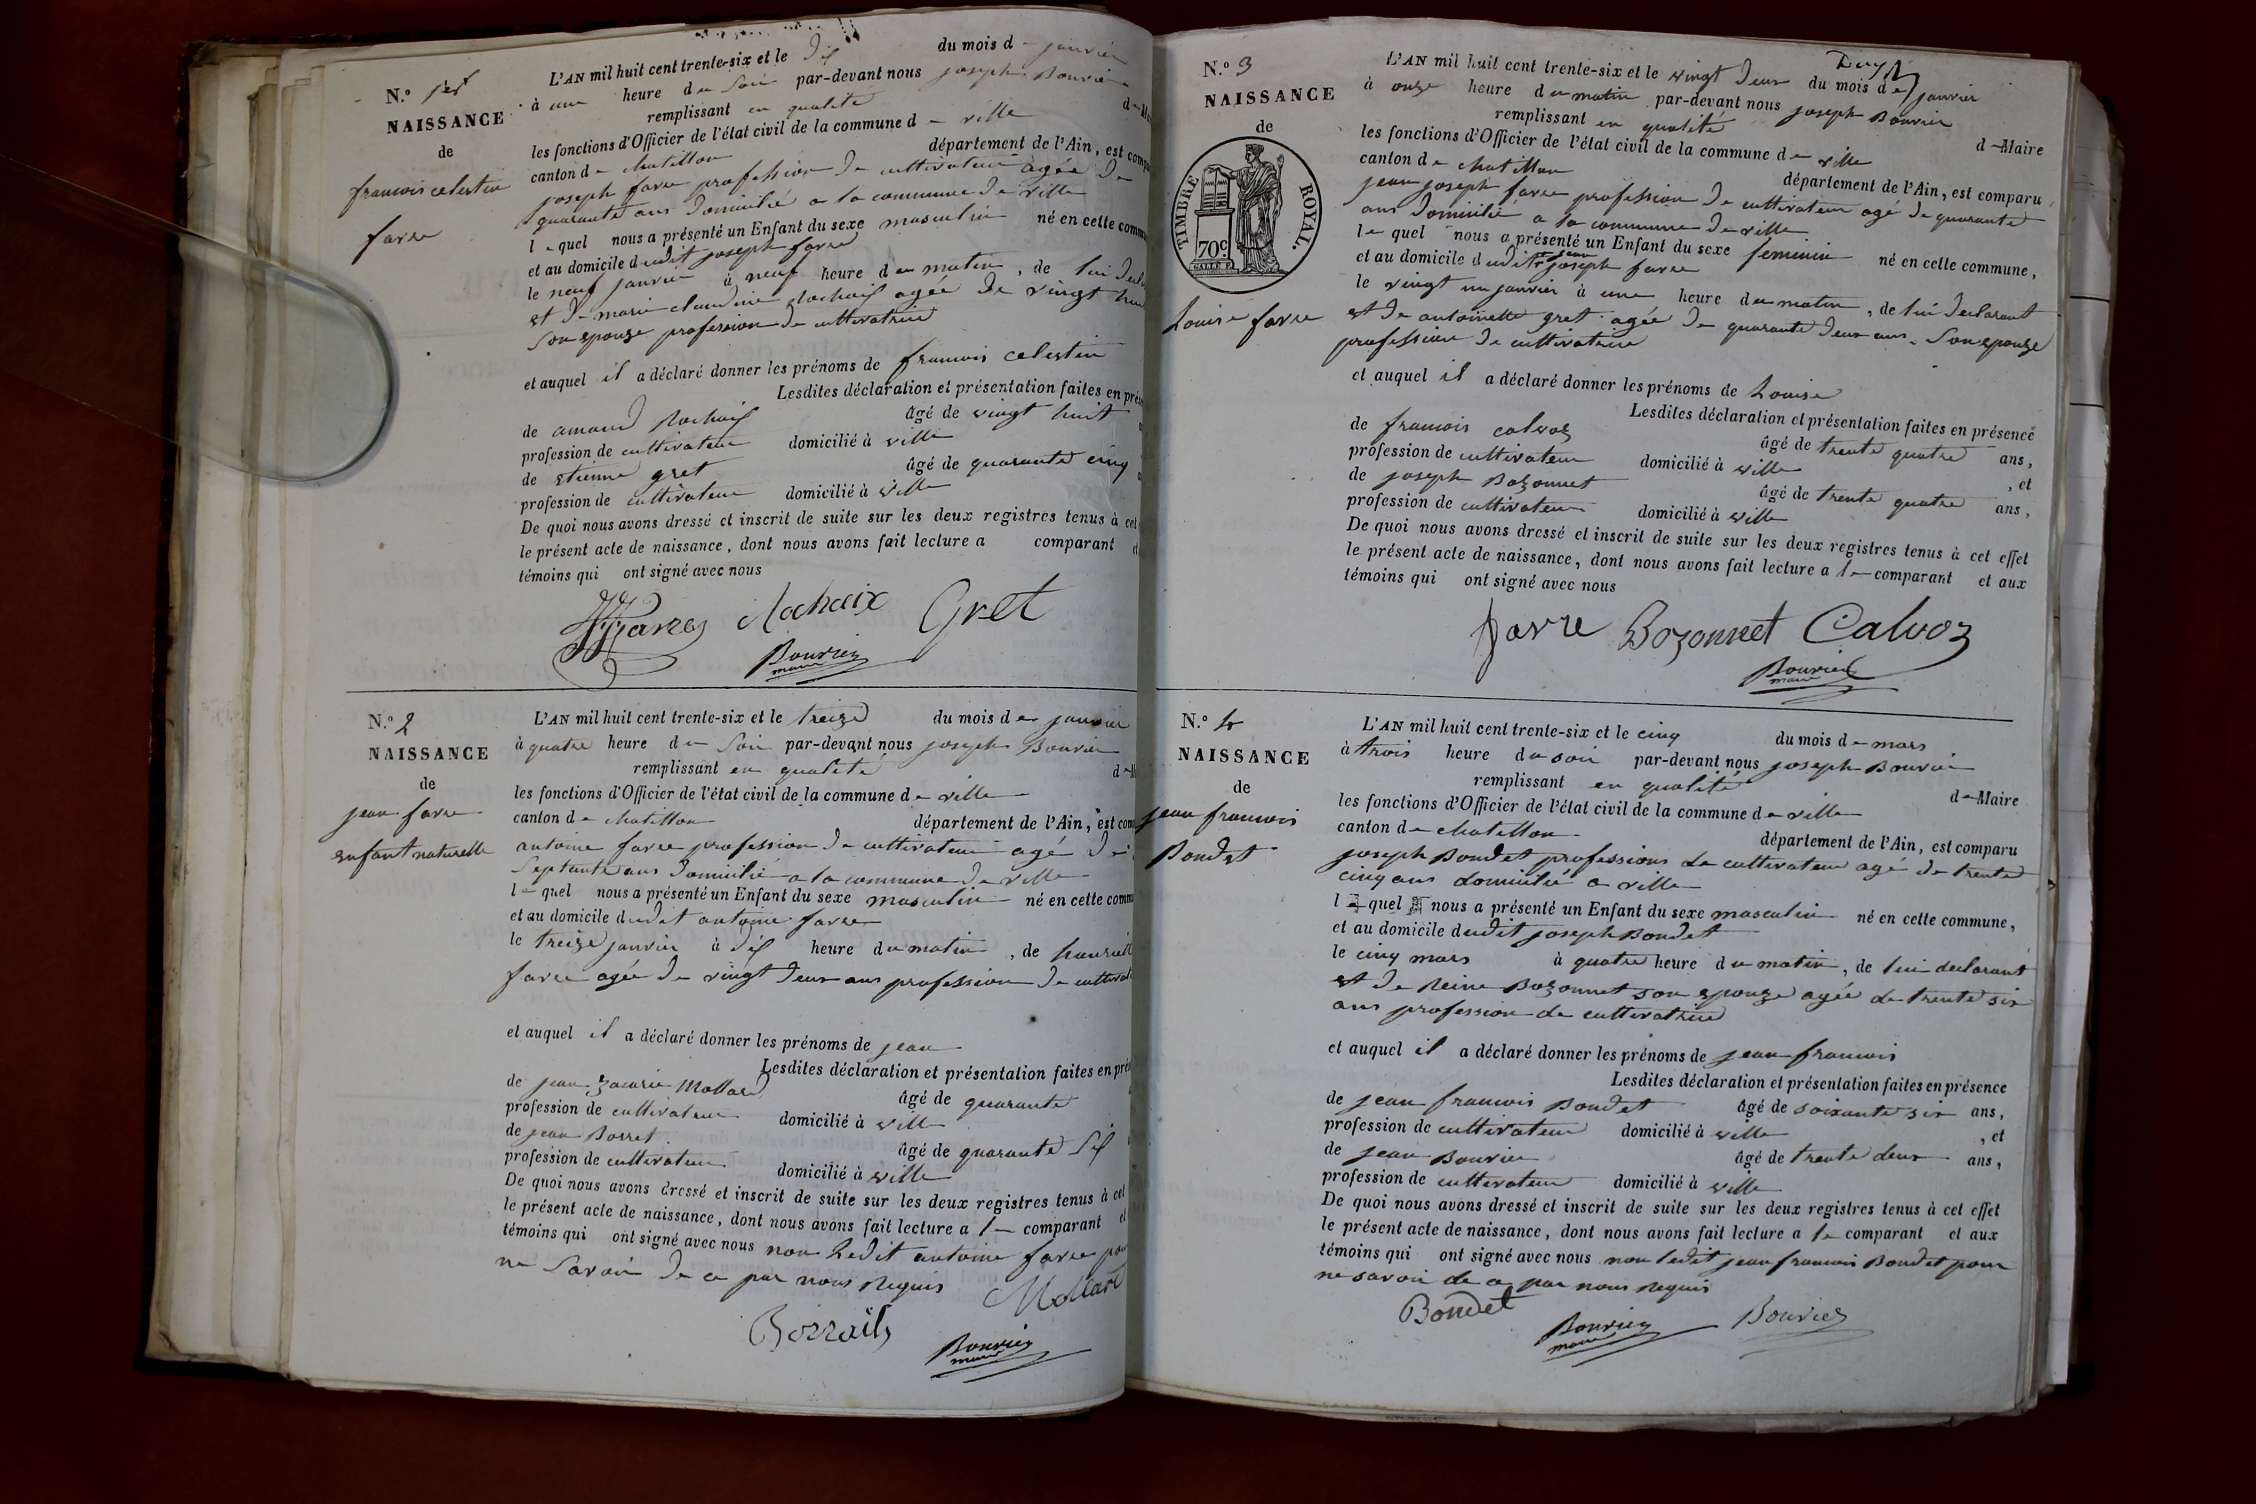 N.º 1er
NAISSANCE
de
francois celestin
favre
L'AN mil huit cent trente-six et le dix du mois d e janvier
à une heure du Soir par-devant nous joseph Bouvier
remplissant en qualité d e
les fonctions d'Officier de l'état civil de la commune d e ville
canton d e chatillon département de l'Ain, est
joseph favre profession de cultivateur agée de
quarante ans domicilié a la commune de ville
l e quel nous a présenté un Enfant du sexe masculin né en cette
et au domicile dudit joseph favre
le neuf janvier à neuf heure du matin, de lui
et de marie claudine Rochaix agée de vingt
Son epouze profession de cultivatrice
et auquel il a déclaré donner les prénoms de francois celestin
Lesdites déclaration et présentation faites en
de amand Rochaix âgé de vingt huit
profession de cultivateur domicilié à ville
de etienne gret âgé de quarante cinq
profession de cultivateur domicilié à ville
De quoi nous avons dressé et inscrit de suite sur les deux registres tenus à cet
le présent acte de naissance, dont nous avons fait lecture a comparant
témoins qui ont signé avec nous
Rochaix Gret
Bouvier
maire
N.º 2
NAISSANCE
de
jean favre
enfant naturelle
L'AN mil huit cent trente-six et le treize du mois d e janvier
à quatre heure du Soir par-devant nous joseph Bouvier
remplissant en qualité d e
les fonctions d'Officier de l'état civil de la commune d e ville
canton d e chatillon département de l'Ain, est
antoine favre profession de cultivateur agé de
Septante ans domicilié a la commune de ville
l e quel nous a présenté un Enfant du sexe masculin né en cette
et au domicile dudit antoine favre
le treize janvier à dix heure du matin, de
favre agée de vingt deux ans profession de
et auquel il a déclaré donner les prénoms de jean
Lesdites déclaration et présentation faites en
de jean zacarie Mollard âgé de quarante
profession de cultivateur domicilié à ville
de jean Borret âgé de quarante Six
profession de cultivateur domicilié à ville
De quoi nous avons dressé et inscrit de suite sur les deux registres tenus à cet
le présent acte de naissance, dont nous avons fait lecture a l e comparant
témoins qui ont signé avec nous non Ledit antoine favre pour
ne Savoir de ce par nous Requis
Mollard
Bouvier
maire
N.º 3
NAISSANCE
de
TIMBRE ROYAL.
70c.
Louise favre
L'AN mil huit cent trente-six et le vingt deux du mois de janvier
à onze heure du matin par-devant nous joseph Bouvier
remplissant en qualité d e Maire
les fonctions d'Officier de l'état civil de la commune d e ville
canton d e chatillon département de l'Ain, est comparu
jean joseph favre profession de cultivateur agé de quarante
ans domicilié a la commune de ville
l e quel nous a présenté un Enfant du sexe feminin né en cette commune,
et au domicile dudit jean joseph favre
le vingt un janvier à une heure du matin, de lui declarant
et de antoinette gret agée de quarante deux ans. Son epouze
profession de cultivatrice
et auquel il a déclaré donner les prénoms de Louise
Lesdites déclaration et présentation faites en présence
de francois calvoz âgé de trente quatre ans,
profession de cultivateur domicilié à ville, et
de joseph Bozonnet âgé de trente quatre ans,
profession de cultivateur domicilié à ville
De quoi nous avons dressé et inscrit de suite sur les deux registres tenus à cet effet
le présent acte de naissance, dont nous avons fait lecture a l e comparant et aux
témoins qui ont signé avec nous
favre Bozonnet Calvoz
Bouvier
maire
N.º 4
NAISSANCE
de
jean francois
Boudet
L'AN mil huit cent trente-six et le cinq du mois d e mars
à trois heure du soir par-devant nous joseph Bouvier
remplissant en qualité d e Maire
les fonctions d'Officier de l'état civil de la commune d e ville
canton d e chatillon département de l'Ain, est comparu
joseph Boudet professions de cultivateur agé de trente
cinq ans domicilié a ville
l e quel nous a présenté un Enfant du sexe masculin né en cette commune,
et au domicile dudit joseph Boudet
le cinq mars à quatre heure du matin, de lui declarant
et de Reine Bozonnet son epouze agée de trente six
ans profession de cultivatrice
et auquel il a déclaré donner les prénoms de jean francois
Lesdites déclaration et présentation faites en présence
de jean francois Boudet âgé de soixante six ans,
profession de cultivateur domicilié à ville, et
de jean Bouvier âgé de trente deux ans,
profession de cultivateur domicilié à ville
De quoi nous avons dressé et inscrit de suite sur les deux registres tenus à cet effet
le présent acte de naissance, dont nous avons fait lecture a le comparant et aux
témoins qui ont signé avec nous non ledit jean francois Boudet pour
ne savoir de ce par nous Requis
Boudet
Bouvier Bouvier
maire